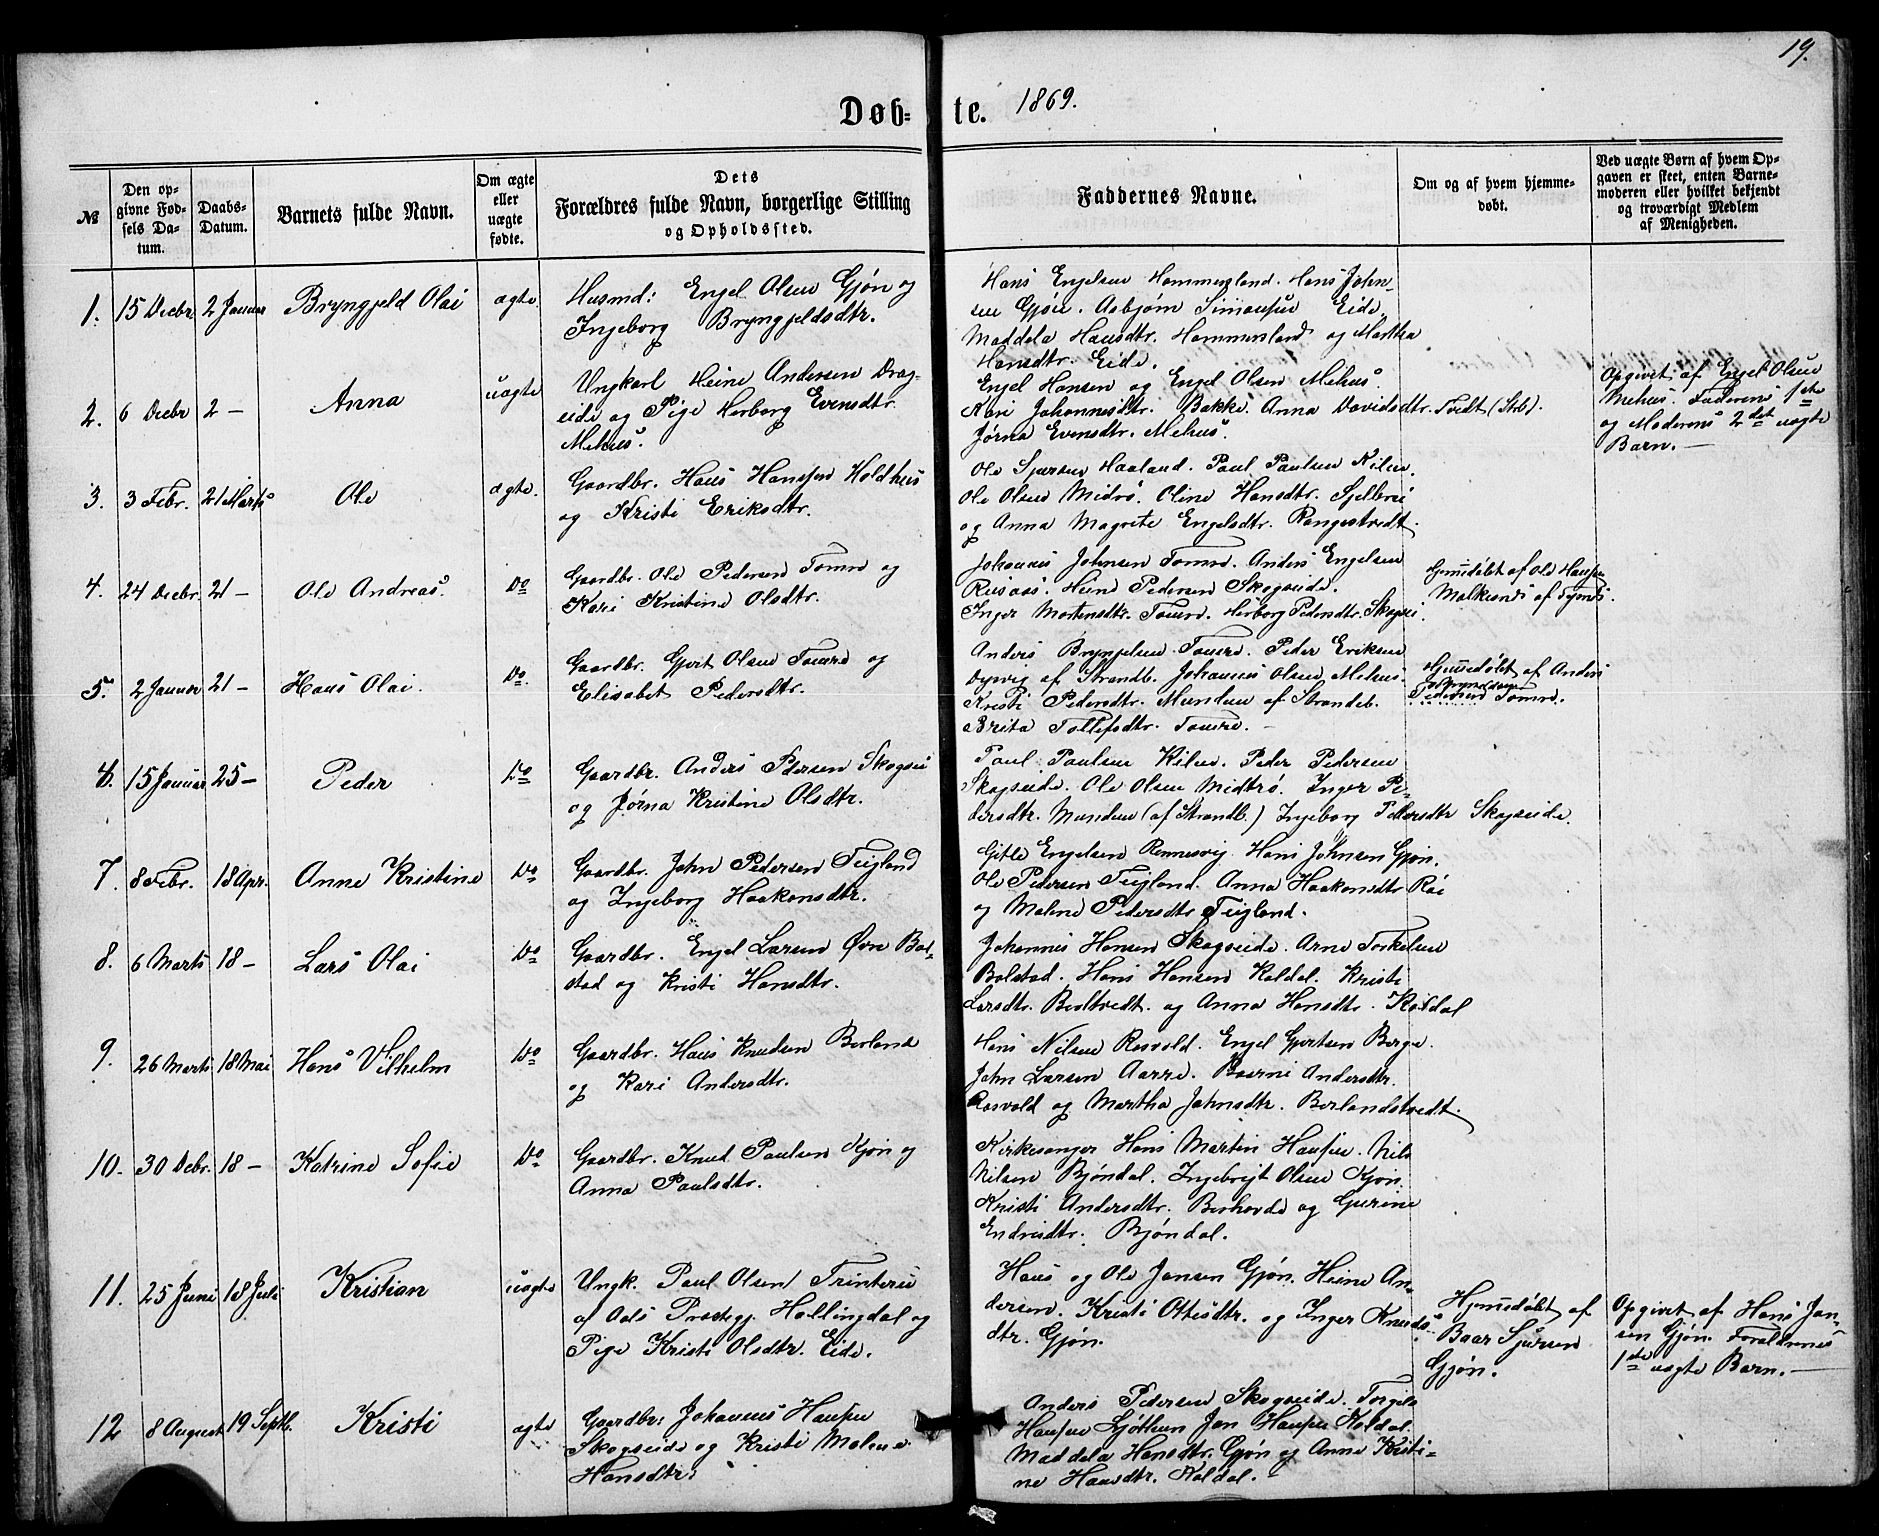 19.
Døb- te. 1869.
№
Den op-
givne Fød-
sels Da-
tum.
Daabs-
Datum.
Barnets fulde Navn.
Om ægte
eller
uægte
fødte.
Dets
Forældres fulde Navn, borgerlige Stilling
og Opholdssted.
Faddernes Navne.
Om og af hvem hjemme-
døbt.
Ved uægte Børn af hvem Op-
gaven er skeet, enten Barne-
moderen eller hvilket bekjendt
og troværdigt Medlem
af Menigheden.
1. 15 Decbr 2 Januar Bryngjeld Olai ægte.
Husmd: Engel Olsen Gjøn og
Ingeborg Bryngjeldsdtr.
Hans Engelsen Hammersland. Hans John-
sen Gjøn. Asbjørn Simonsen Eide.
Maddela Hansdtr. Hammersland og Martha
Hansdtr. Eide.
2. 6 Decbr 2 — Anna uægte
Ungkarl Heine Andersen Drag-
eide og Pige Herborg Evensdtr.
Mehus.
Engel Hansen og Engel Olsen Mehus.
Kari Johannesdtr. Bakke. Anna Davidsdtr. Tvedt (Strb).
Jørna Evensdtr. Mehus.
Opgivet af Engel Olsen
Mehus. Faderens 1ste
og Moderens 2det uægte
Barn. —
3. 3 Febr. 21 Marts Ole ægte.
Gaardbr. Hans Hansen Holdhus
og Kristi Eriksdtr.
Ole Sjursen Haaland. Paul Paulsen Kilen.
Ole Olsen Midtrø. Oline Hansdtr.
og Anna Magrete Engelsdtr.
4. 24 Decbr. 21 — Ole Andreas. Do
Gaardbr. Ole Pedersen Tomre og
Kari Kristine Olsdtr.
Johannes Johnsen Tomre. Anders Engelsen
Heine Pedersen Skogseide.
Inger Mortensdtr. Tomre. Herborg Pedersdtr. Skogsei.
Hjemmedøbt af Ole Hansen
5. 2 Januar 21 — Hans Olai. Do.
Gaardbr. Gjert Olsen Tomre og
Elisabet Pedersdtr.
Anders Brynjelsen Tomre. Peder Eriksen
Dyvig af Strandb. Johannes Olsen Mehus.
Kristi Pedersdtr. Munden af Strandeb.
Brita Tollefsdtr. Tomre. —
Hjemmedøbt af Anders
Pedersen Tomre.
6. 15 Januar 25 — Peder Do
Gaardbr. Anders Pedersen Skogsei
og Jørna Kristine Olsdtr.
Paul Paulsen Kilen. Peder Pedersen
Skogseide. Ole Olsen Midtrø. Inger Pe-
dersdtr. Munden (af Strandb.) Ingeborg Pedersdtr Skogseide.
7. 8 Febr. 18 Apr. Anne Kristine Do
Gaardbr. John Pedersen Teigland
og Ingeborg Haakonsdtr.
Gitle Engelsen Rennesvig. Hans Johnsen Gjøn.
Ole Pedersen Teigland. Anna Haakonsdtr Røi
og Malene Pedersdtr Teigland.
8. 6 Marts 18 — Lars Olai Do
Gaardbr. Engel Larsen Øvre Bol-
stad og Kristi Hansdtr.
Johannes Hansen Skogseide. Arne Torkelsen
Bolstad. Hans Hansen Koldal. Kristi
Larsdtr. Berltvedt. og Anna Hansdtr. Koldal
9. 26 Marts 18 Mai Hans Vilhelm Do
Gaardbr. Hans Knudsen Berland
og Kari Andersdtr.
Hans Nilsen Rosvold. Engel Gjertsen Berge.
John Larsen Aarre. Andersdtr.
Rosvold og Martha Johnsdtr. Berlandstvedt.
10. 30 Debr. 18 — Katrine Sofie Do
Gaardbr. Knud Paulsen Kjøn og
Anna Paulsdtr.
Kirkesanger Hans Martin Hansen. Nils
Nilsen Bjøndal. Ingebrigt Olsen Kjøn.
Kristi Andersdtr. Berhovde og Gurine
Endresdtr. Bjøndal.
11. 25 Juni 18 Juli Kristian uægte
Ungk. Paul Olsen
af Aals Prestegj. Hallingdal og
Pige Kristi Olsdtr. Eide.
Hans og Ole Jansen Gjøn. Heine An-
dersen. Kristi Ottesdtr. og Inger Knuds-
dtr. Gjøn.
Hjemmedøbt af
Baar Sjursen
Gjøn.
Opgivet af Hans Jan-
sen Gjøn. Forældrenes
1ste uægte Barn. —
12 8 August 19 Septb. Kristi ægte
Gaardbr: Johannes Hansen
Skogseide og Kristi Malene
Hansdtr.
Anders Pedersen Skogseide. Torgils
Hansen Jan Hansen Koldal.
Maddela Hansdtr. Gjøn og Anne Kristi-
ne Hansdtr. Koldal.